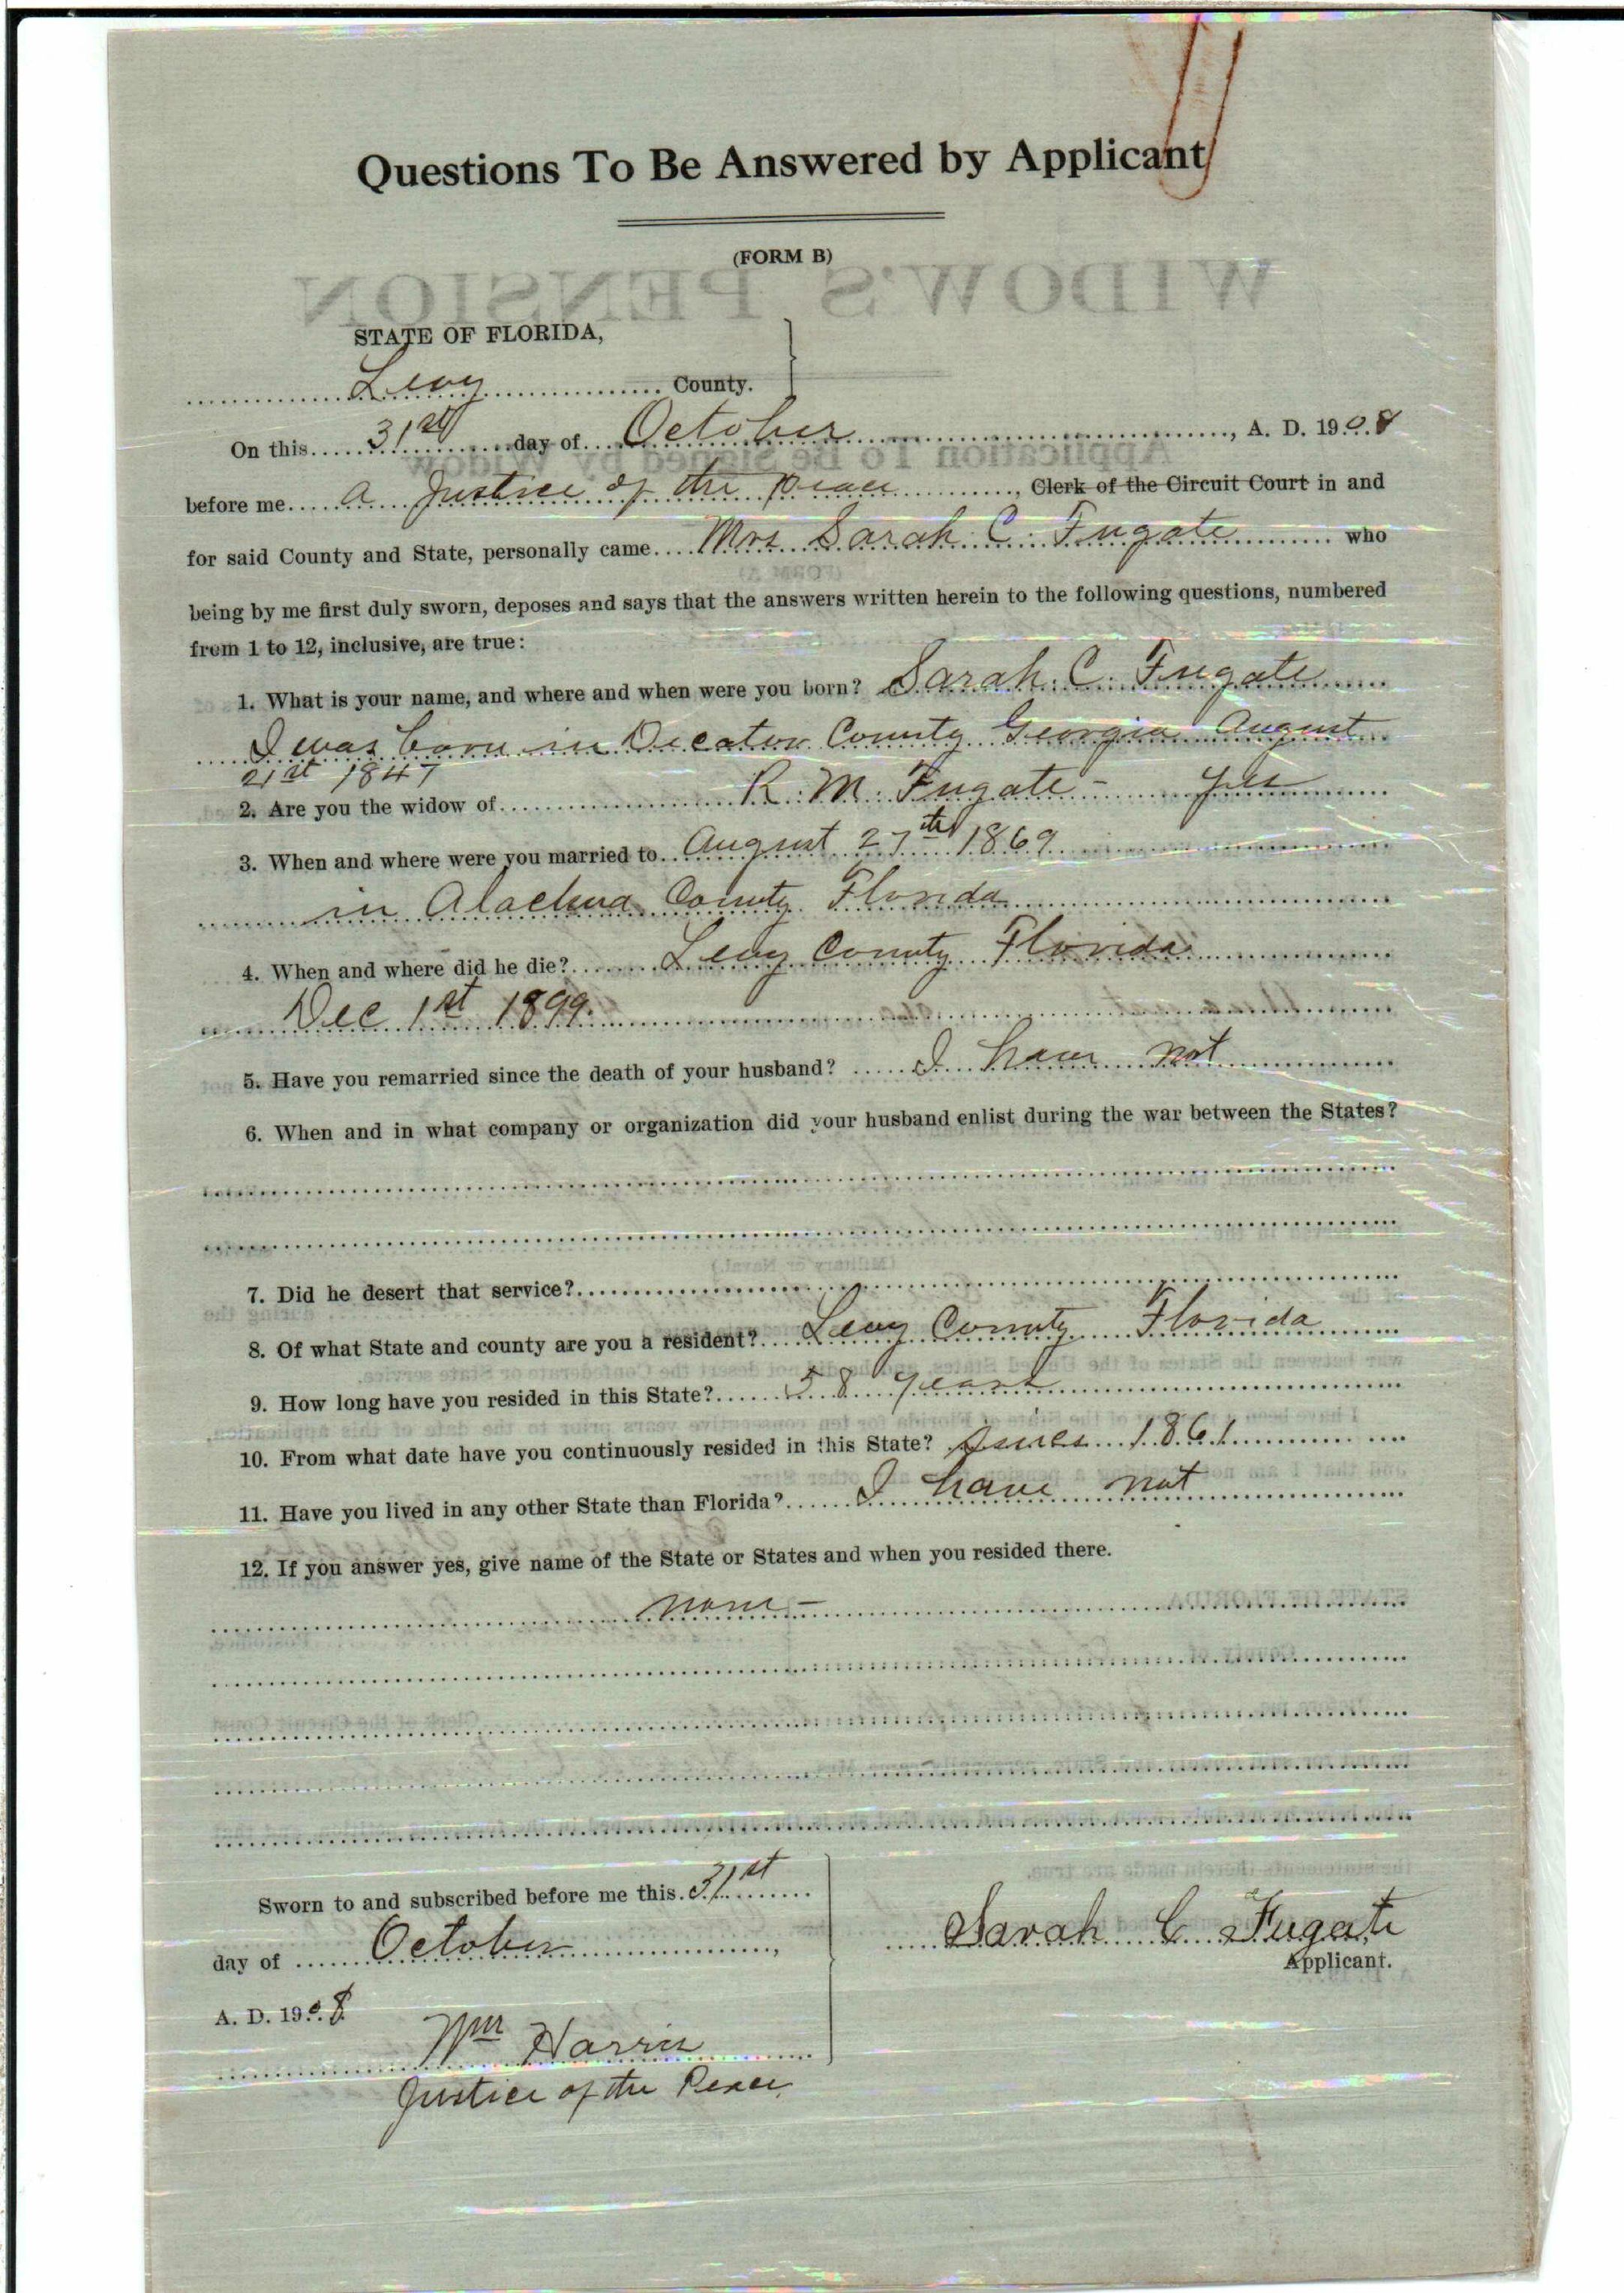 Questions To Be Answered by Applicant
(FORM B)
WIDOW'S PENSION
STATE OF FLORIDA,
Levy County.
On this 31st day of October, A. D. 1908
Application To Be Signed by Widow
before me a Justice of the peace, Clerk of the Circuit Court in and
for said County and State, personally came Mrs Sarah C. Fugate who
(FORM A)
being by me first duly sworn, deposes and says that the answers written herein to the following questions, numbered
from 1 to 12, inclusive, are true:
1. What is your name, and where and when were you born? Sarah. C. Fugate
I was born in Decatur County Georgia August
21st 1847
2. Are you the widow of R. M. Fugate - yes
3. When and where were you married to August 27th 1869
in Alachua County Florida
4. When and where did he die? Levy County Florida
Dec 1st 1899.
5. Have you remarried since the death of your husband? I have not
6. When and in what company or organization did your husband enlist during the war between the States?
(Military or Naval.)
7. Did he desert that service?
8. Of what State and county are you a resident? Levy County Florida
9. How long have you resided in this State? 58 years
10. From what date have you continuously resided in this State? Since 1861
11. Have you lived in any other State than Florida? I have not
12. If you answer yes, give name of the State or States and when you resided there.
none -
STATE OF FLORIDA
County of
Clerk of the Circuit Court
the statements therein made are true.
Sworn to and subscribed before me this 31st
day of October,
A. D. 1908
Wm Harris
Justice of the Peace
Sarah C Fugate
Applicant.